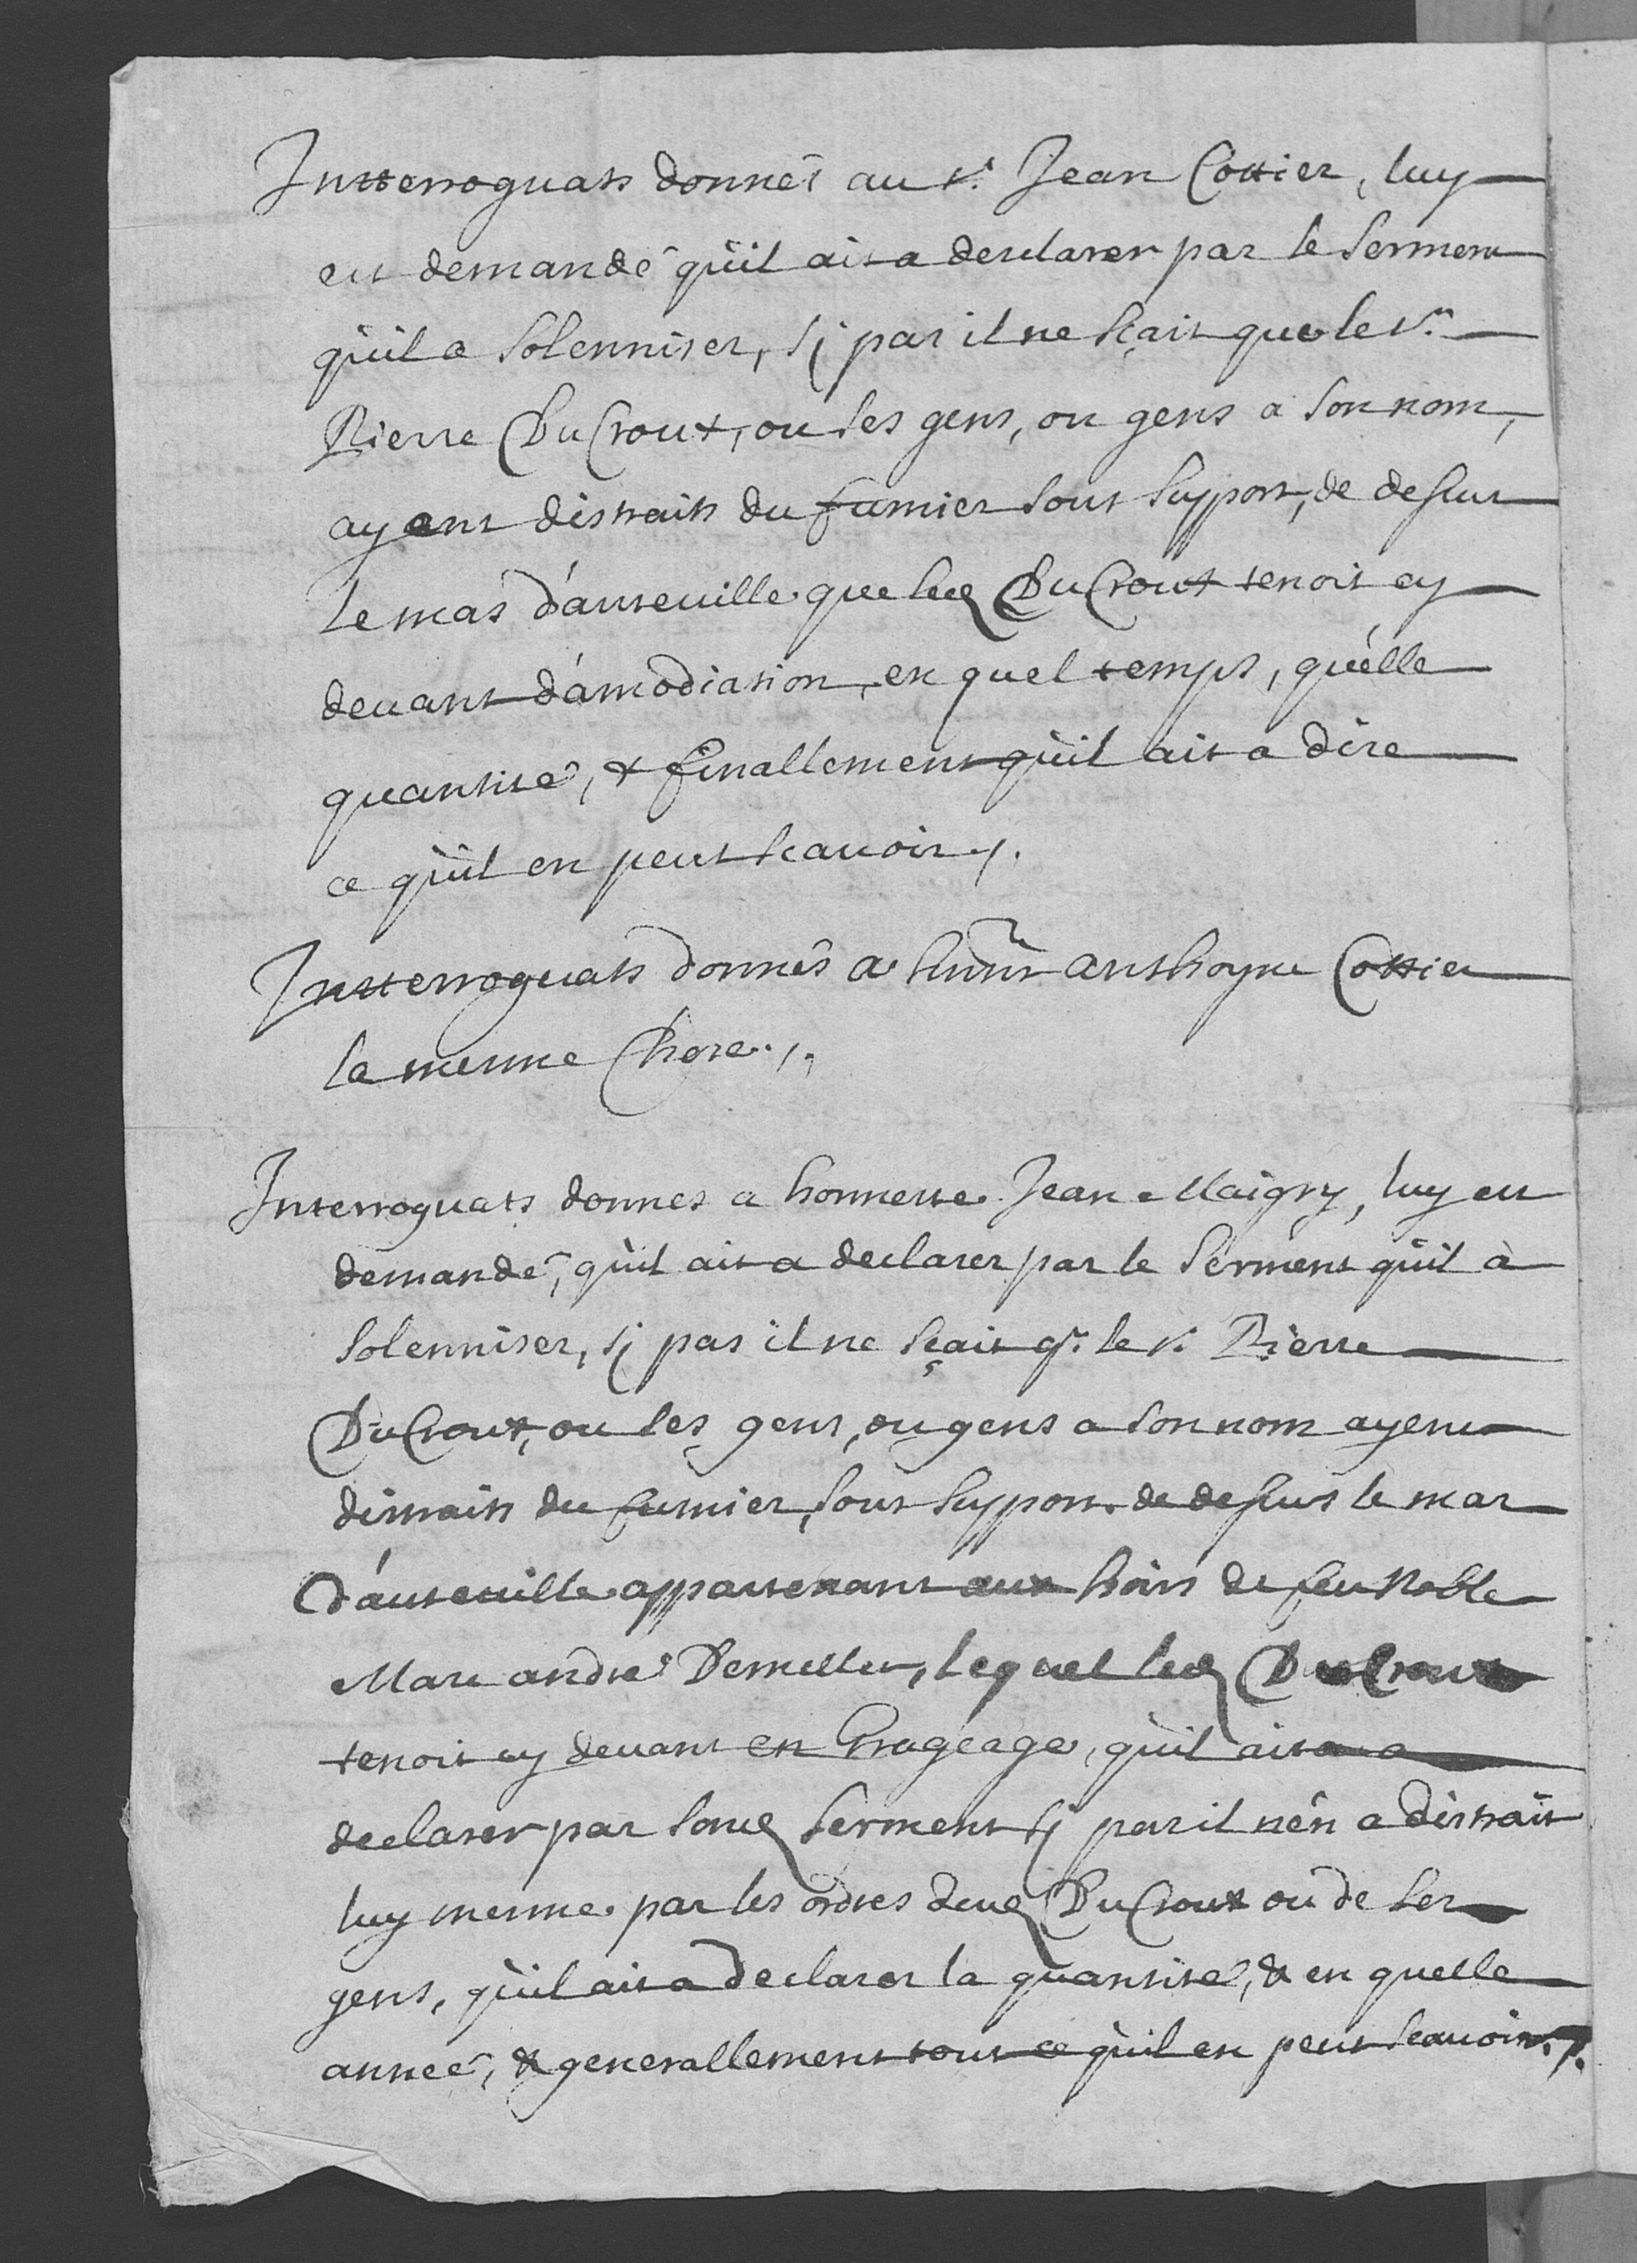 Jntterroguats donnés au sr. Jean Cottier, luy
est demandé qu'il ait a desclarer par le serment
qu'il a solenniser, sj pas il ne sçait que le sr.
Pierre DuCrout, ou ses gens, ou gens a son nom,
ayent distraits du fumier sous suppost, de dessus
le mas d'auteville que led DuCrout tenoit cy
devant d'amodiation, en quel temps, qu'elle
quantité, & finallement qu'il ait a dire
ce qu'il en peut scavoir./.
Jntterroguats donnés a honnr Anthoyne Cottier
la mesme Chose./.
Jnterroguats donnes a honneste Jean Maigry, luy est
demandé, qu'il ait a declarer par le serment qu'il à
solenniser, sj pas il ne sçait q. le sr. Pierre
DuCrout, ou ses gens, ou gens a son nom ayent
distraits du fumier, sous suppost de dessus le mas
d'auteville appartenant aux hoirs de feu Noble
Marc André Demellet, lequel led DuCrout
tenoit cy devant en Grageage, qu'il ait a
declarer par sond serment sj pas il n'en a distrait
luy mesme par les ordres dud DuCrout ou de ses
gens, qu'il ait a declarer la quantité, & en quelle
année, & generallement tout ce qu'il en peut scavoir./.